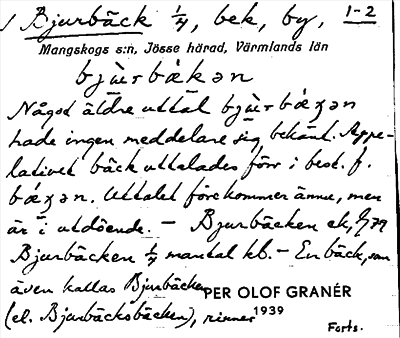 / Bjurbäck 1/4, bek, by, 1-2
Mangskogs s:n, Jösse härad, Värmlands län
bjùrbǽkən
Något äldre uttal bjùrbǽχən
hade ingen meddelare sig bekant. Appe-
lativet bäck uttalades förr i best. f.
bǽχən. Uttalet förekommer ännu, men
är i utdöende. – Bjurbäcken ek,
Bjurbäcken 1/4 mantal kb. – En bäck, som
även kallas Bjurbäcken
PER OLOF GRANÉR
(el. Bjurbäcksbäcken), rinner
1939
Forts.